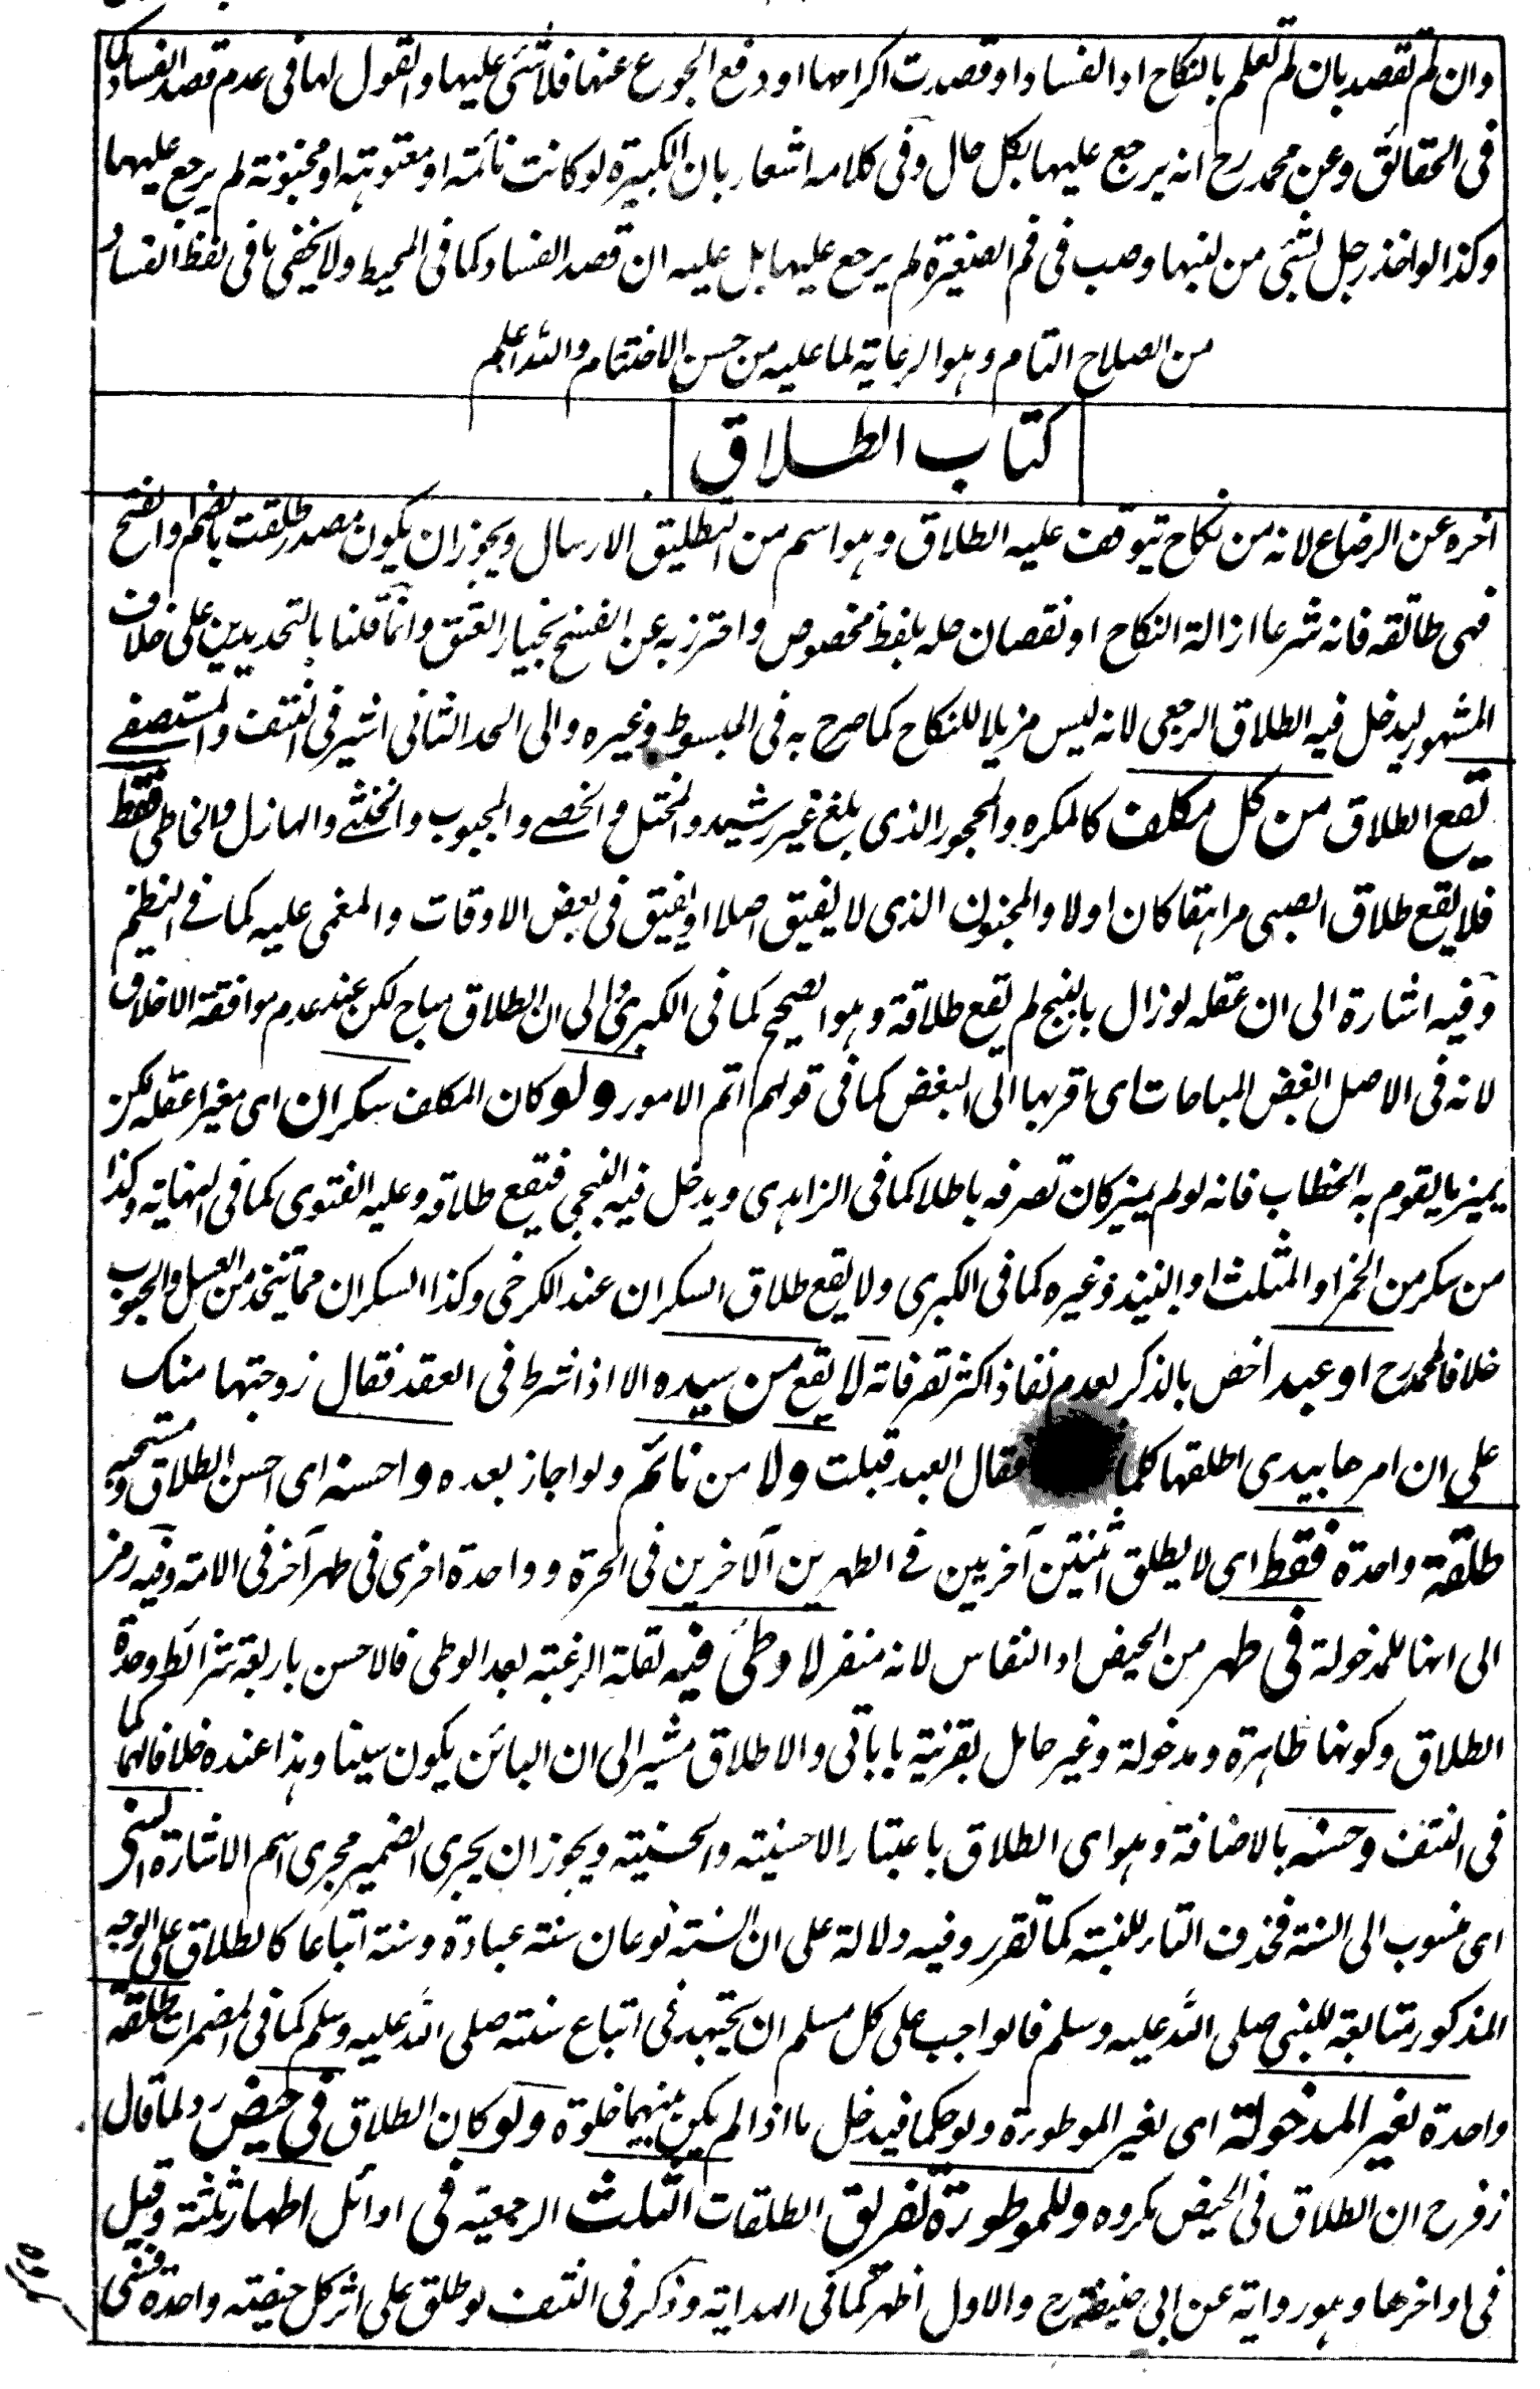 وان لم تقصد بان لم تعلم بالنكاح او الفساد او قصدت اكرامها او دفع الجوع عنها فلا شئ عليها والقول لها فى عدم قصد الفساد كما
فى الحقائق وعن محمد رح انه يرجع عليها بكل حال وفى كلامه اشعار بان الكبيرة لو كانت نائمة او معتوهة او مجنونة لم يرجع عليها
وكذا لو اخذ رجل لشئ من لبنها وصب فى فم الصغيرة لم يرجع عليها بل عليه ان قصد الفساد كما فى المحيط ولا يخفى ما فى لفظ الفساد
من الصلاح التام وهو الرعاية لما عليه من حسن الاختتام والله اعلم
كتاب الطلاق
اخره عن الرضاع لانه من نكاح يتوقف عليه الطلاق وهو اسم من التطليق الارسال ويجوز ان يكون مصدر طلقت بالضم او الفتح
فهى طالقه فانه شرعا ازالة النكاح او نقصان حله بلفظ مخصوص واحترز به عن الفسخ بخيار العتق وانما قلنا بالتحديدين على خلاف
المشهور ليدخل فيه الطلاق الرجعى لانه ليس مزيلا للنكاح كما صرح به فى المبسوط وغيره والى الحد الثانى اشير فى النتف والمستصفے
يقع الطلاق من كل مكلف كالمكره والمحجور الذى بلغ غير رشيد والمختل والخصے والمجبوب والخنثے والهازل والخاطى فقط
فلا يقع طلاق الصبى مراهقا كان او لا والمجنون الذى لا يفيق اصلا او يفيق فى بعض الاوقات والمغمى عليه كما فے النظم
وفيه اشارة الى ان عقله لو زال بالبنج لم يقع طلاقة وهو الصحيح كما فى الكبرى والى ان الطلاق مباح لكن عند عدم موافقة الاخلاق
لانه فى الاصل ابغض المباحات اى اقربها الى البغض كما فى قولهم اتم الامور ولو كان المكلف سكران اى مغيرا عقله لكن
يميز ما يقوم به الخطاب فانه لو لم يميز كان تصرفه باطلا كما فى الزاهدى ويدخل فيه البنجى فتقع طلاقه وعليه الفتوى كما فى النهاية وكذا
من سكر من الخمر او المثلث او النبيذ وغيره كما فى الكبرى ولا يقع طلاق السكران عند الكرخى وكذا السكران مما يتخذ من العسل والحبوب
خلافا لمحمد رح او عبد اخص بالذكر لعدم نفاذ اكثر تصرفاته لا يقع من سيده الا اذا شرط فى العقد فقال زوجتها منك
على ان امرها بيدى اطلقها كلما فقال العبد قبلت ولا من نائم ولو اجاز بعده واحسنه اى احسن الطلاق ومستحبه
طلقة واحدة فقط اى لا يطلق اثنتين آخريين فے الطهرين الآخرين فى الحرة وواحدة اخرى فى طهر آخر فى الامة وفيه رمز
الى انها للمدخولة فى طهر من الحيض او النفاس لانه منفر لا وطئ فيه لقلة الرغبة بعد الوطى فالاحسن باربعة شرائط وحدة
الطلاق وكونها طاهرة ومدخولة وغير حامل بقرينة ما ياتى والاطلاق مشير الى ان البائن يكون سنيا وهذا عنده خلافا لهما كما
فى النتف وحسنه بالاضافة وهو اى الطلاق باعتبار الاحسنية والحسنية ويجوز ان يجرى الضمير مجرى اسم الاشارة السنى
اى منسوب الى السنة فحذف التاء للنسبة كما تقرر وفيه دلالة على ان السنة نوعان سنة عبادة وسنة اتباعا كالطلاق على الوجه
المذكور متابعة للنبى صلى الله عليه وسلم فالواجب على كل مسلم ان يجتهد فى اتباع سنته صلى الله عليه وسلم كما فى المضمرات طلقة
واحدة لغير المدخولة اى لغير الموطورة ولو حكما فيدخل ما اذا لم يكن بينهما خلوة ولو كان الطلاق فى حيض رد لما قال
زفر رح ان الطلاق فى الحيض مكروه وللموطورة تفريق الطلقات الثلث الرجعية فى اوائل اطهار ثلثة وقيل
فى اواخرها وهو رواية عن ابى حنيفة رح والاول اظهر كما فى الهداية وذكر فى النتف لو طلق على اثر كل حيضته واحدة فسنى